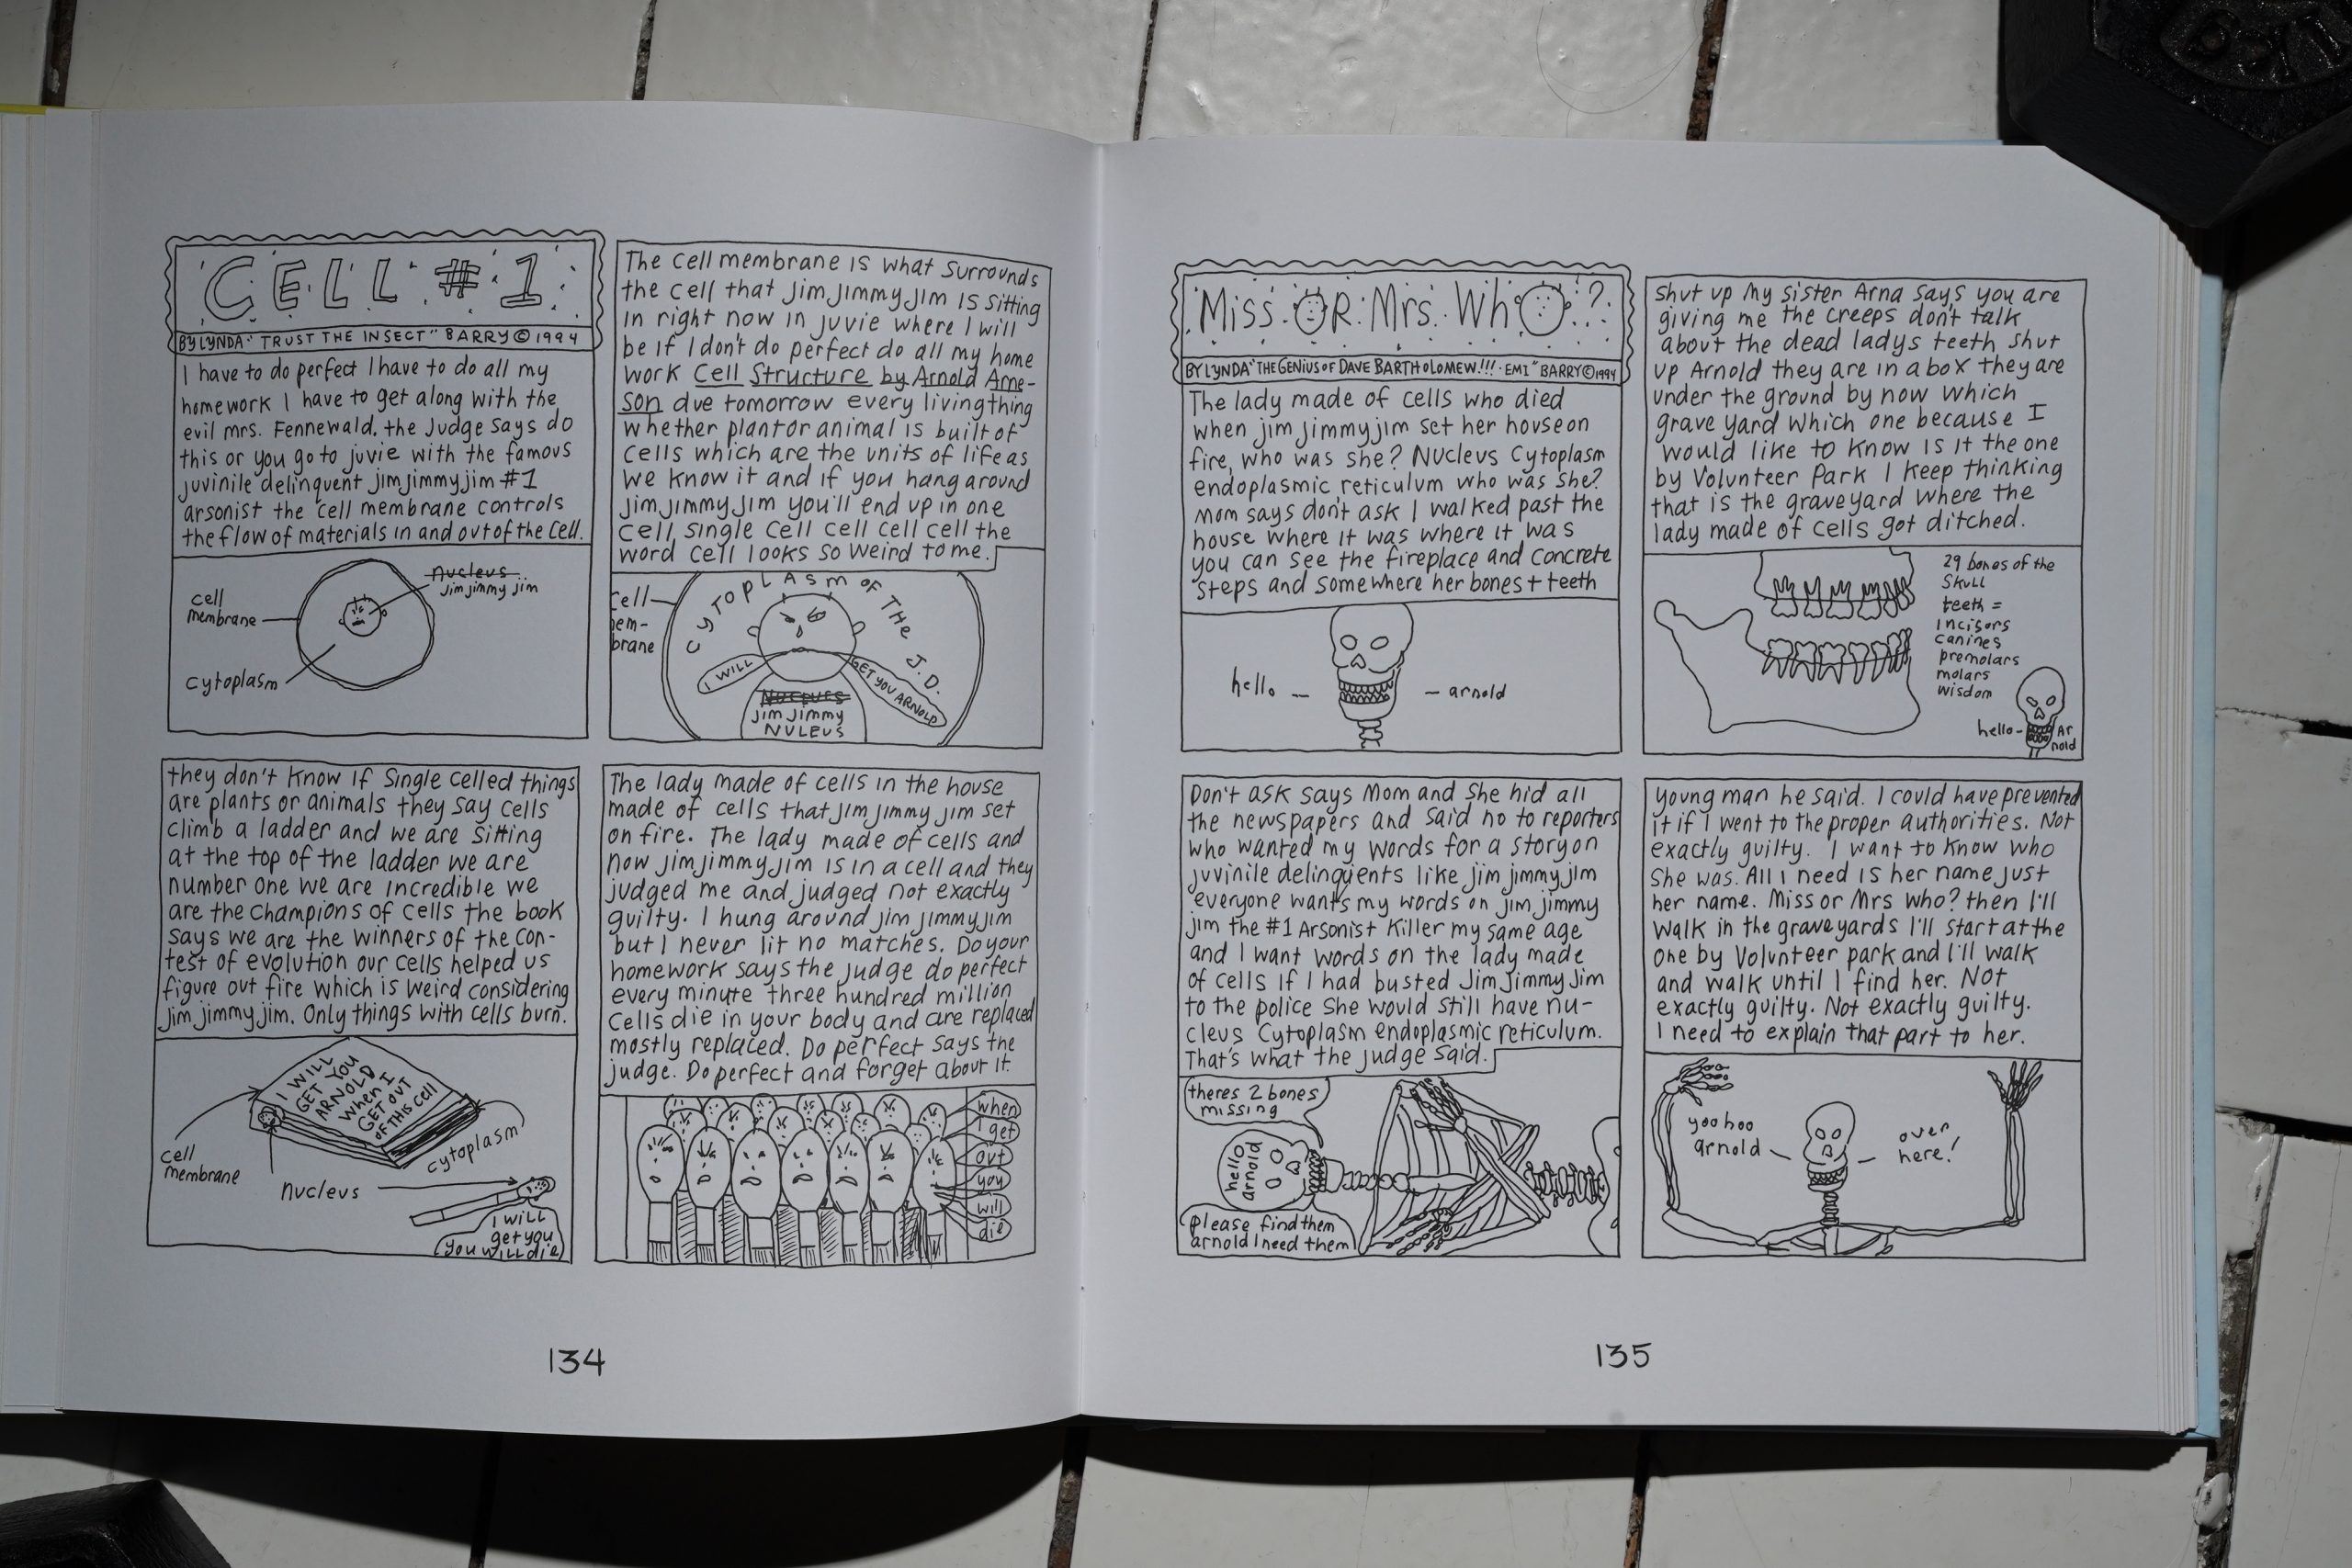 CELL #1
BY LYNDA "TRUST THE INSECT" BARRY © 1994
I have to do perfect I have to do all my
homework I have to get along with the
evil mrs. Fennewald. the Judge says do
this or you go to juvie with the famous
juvinile delinquent jimjimmyjim #1
arsonist the cell membrane controls
the flow of materials in and out of the cell.
cell
membrane
nucleus
Jimjimmy jim
cytoplasm
The cell membrane is what surrounds
the cell that Jimjimmyjim is sitting
in right now in juvie where I will
be if I don't do perfect do all my home
work Cell Structure by Arnold Arne-
son due tomorrow every living thing
whether plant or animal is built of
cells which are the units of life as
we know it and if you hang around
Jimjimmyjim you'll end up in one
cell, single cell cell cell cell the
word cell looks so weird to me.
Cell
mem-
brane
CYTOPLASM OF THE J.D.
I WILL
GET YOU ARNOLD
Jim Jimmy
NULEUS
they don't know if single celled things
are plants or animals they say cells
climb a ladder and we are sitting
at the top of the ladder we are
number one we are incredible we
are the champions of cells the book
says we are the winners of the con-
test of evolution our cells helped us
figure out fire which is weird considering
Jimjimmyjim. Only things with cells burn.
I WILL
GET YOU
ARNOLD
When I
GET OUT
OF THIS Cell
cell
membrane
nucleus
cytoplasm
I will
get you
you will die
The lady made of cells in the house
made of cells that Jim Jimmy jim set
on fire. The lady made of cells and
now jimjimmyjim is in a cell and they
judged me and judged not exactly
guilty. I hung around jim jimmyjim
but I never lit no matches. Do your
homework says the judge do perfect
every minute three hundred million
cells die in your body and are replaced
mostly replaced. Do perfect says the
judge. Do perfect and forget about it.
when
I get
out
you
will
die
134
Miss OR Mrs. WhO?
BY LYNDA "THE GENIUS OF DAVE BARTHOLOMEW!!! • EMI" BARRY © 1994
The lady made of cells who died
when jimjimmyjim set her house on
fire, who was she? Nucleus Cytoplasm
endoplasmic reticulum who was she?
Mom says don't ask I walked past the
house where it was where it was
you can see the fireplace and concrete
steps and somewhere her bones + teeth
hello
arnold
Shut up my sister Arna says you are
giving me the creeps don't talk
about the dead ladys teeth shut
up Arnold they are in a box they are
under the ground by now which
grave yard which one because I
would like to know is it the one
by Volunteer Park I keep thinking
that is the graveyard where the
lady made of cells got ditched.
29 bones of the
skull
teeth =
incisors
canines
premolars
molars
wisdom
hello
Ar
nold
Don't ask says Mom and she hid all
the newspapers and said no to reporters
who wanted my words for a story on
juvinile delinquents like jimjimmyjim
everyone wants my words on jimjimmy
jim the #1 Arsonist Killer my same age
and I want words on the lady made
of cells if I had busted Jimjimmyjim
to the police she would still have nu-
cleus Cytoplasm endoplasmic reticulum.
That's what the judge said.
theres 2 bones
missing
hello
arnold
please find them
arnold I need them
young man he said. I could have prevented
it if I went to the proper authorities. Not
exactly guilty. I want to know who
she was. All i need is her name just
her name. Miss or Mrs who? then I'll
walk in the graveyards I'll start at the
one by Volunteer park and I'll walk
and walk until I find her. Not
exactly guilty. Not exactly guilty.
I need to explain that part to her.
yoo hoo
arnold
over
here!
135